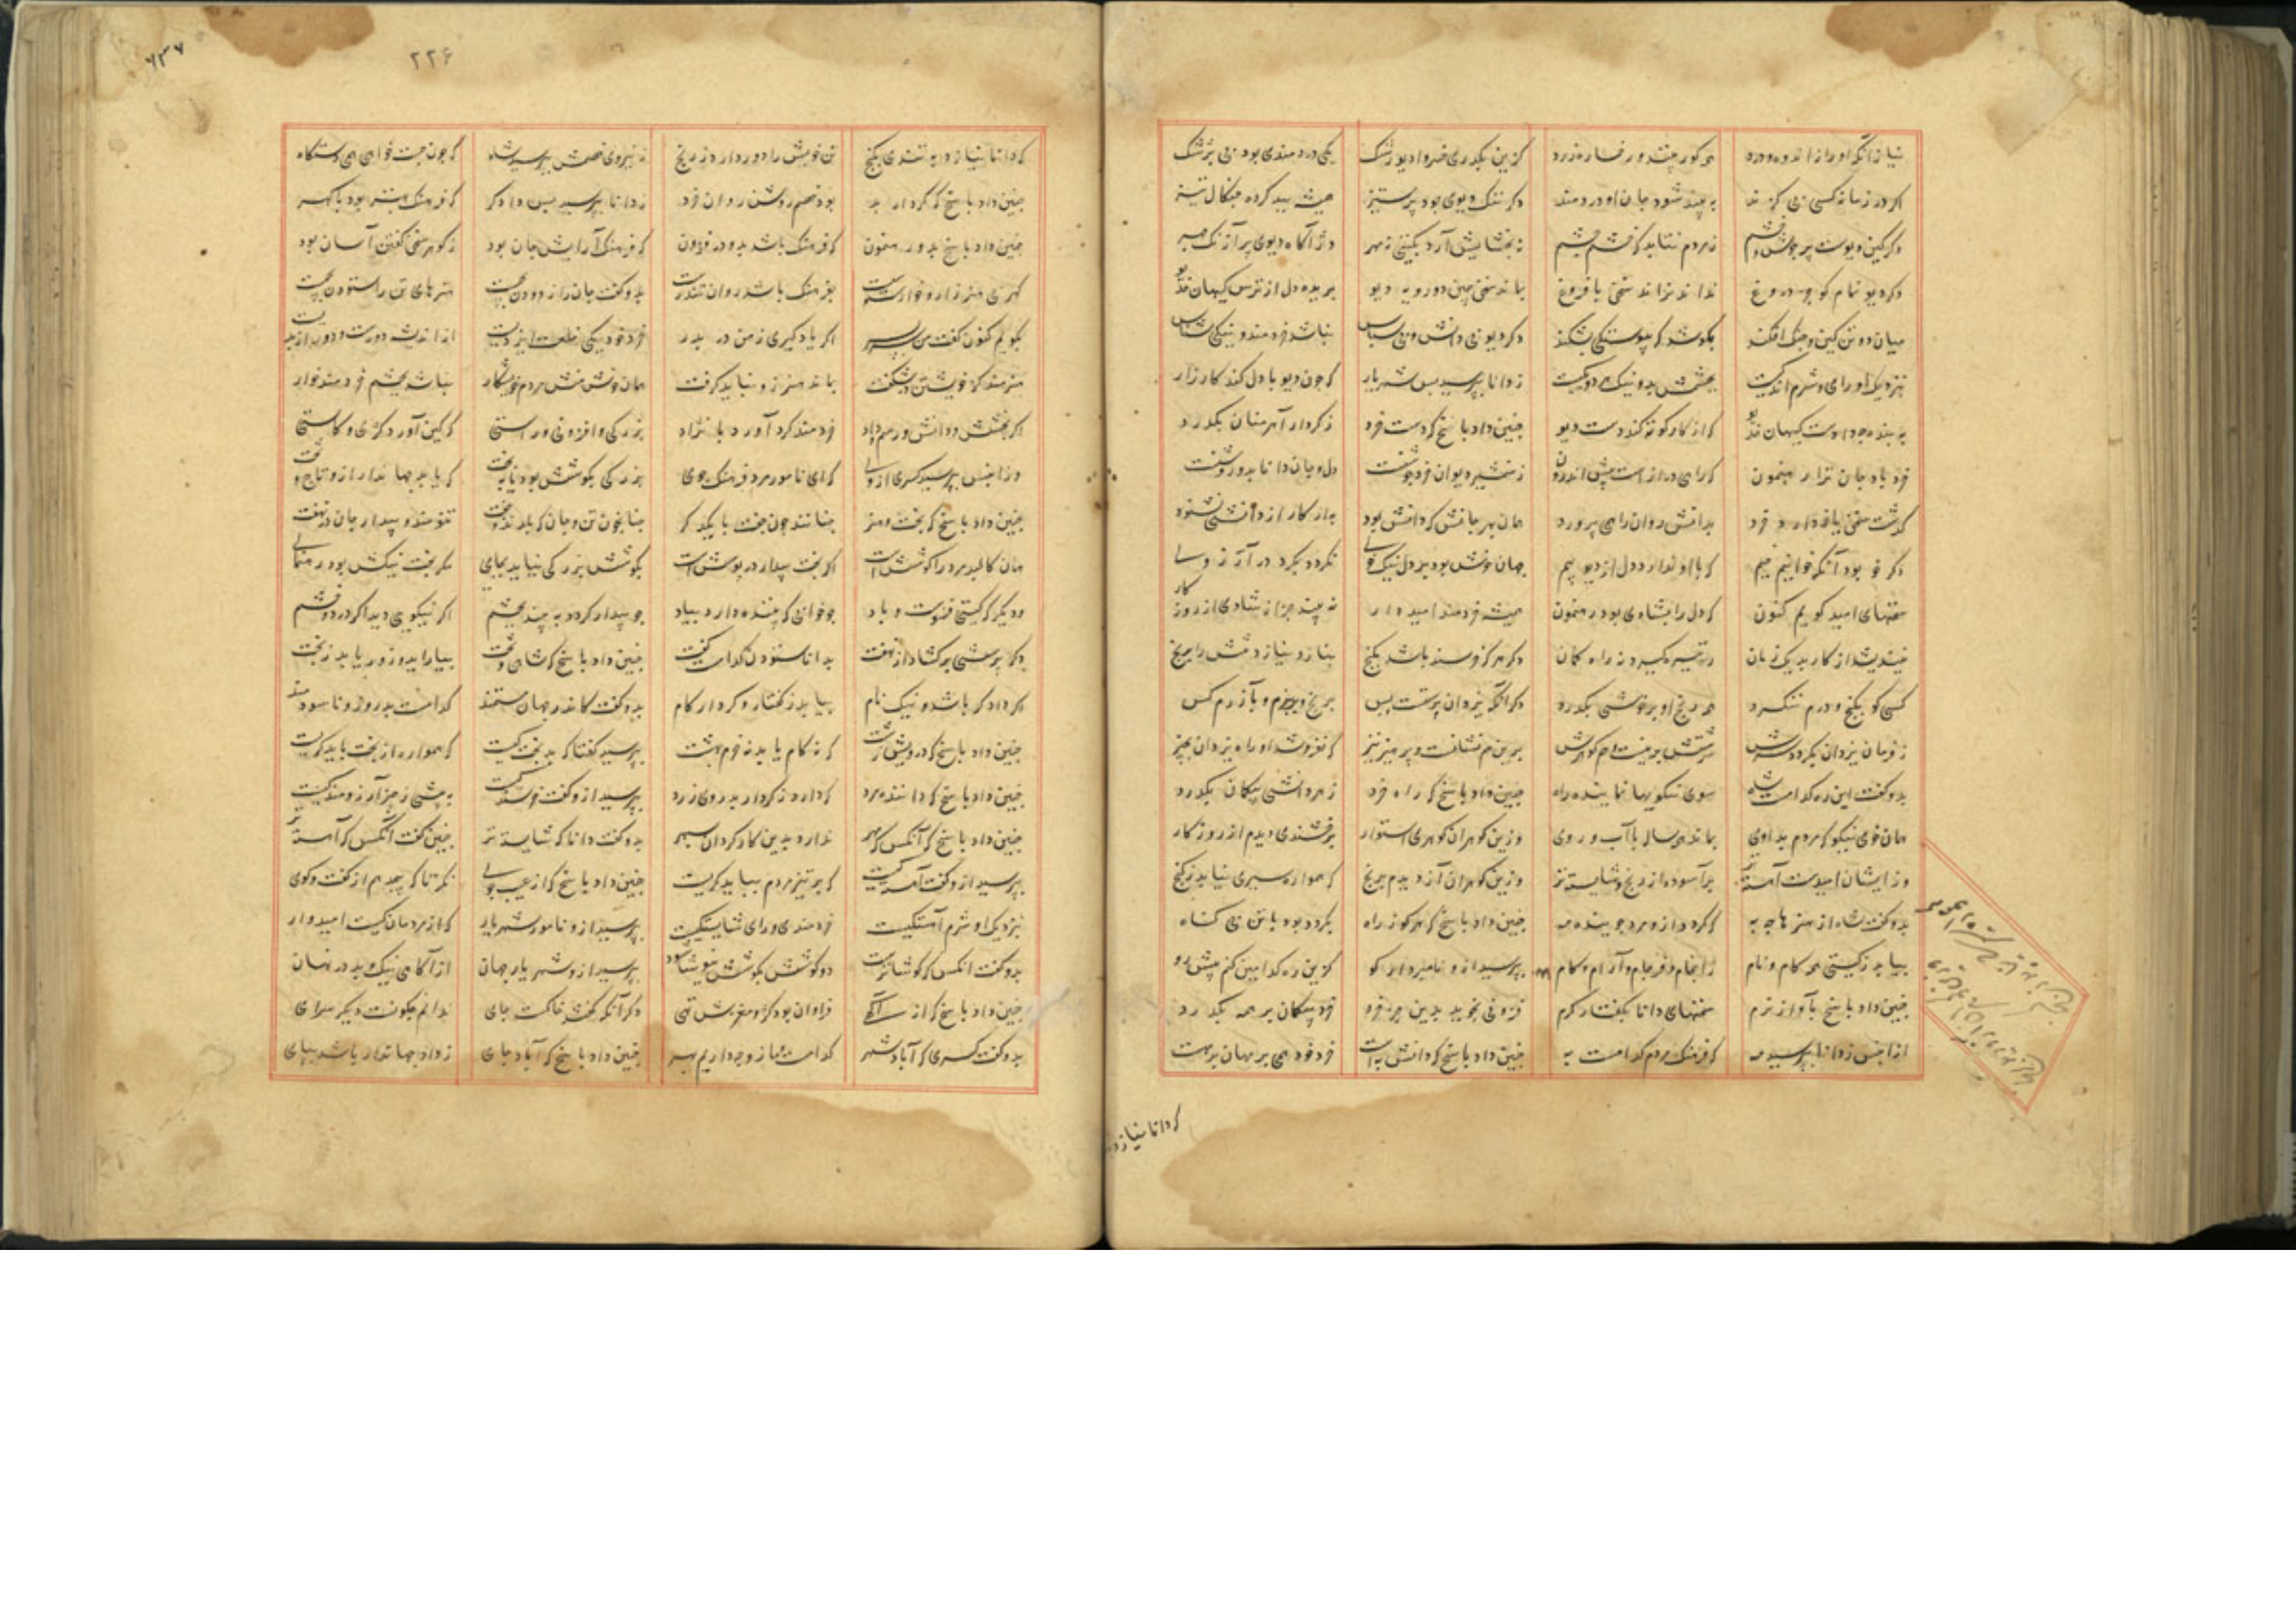 نیاز آنکه او را ز اندوه و درد همی کور بیند و رخساره زرد کزین بگذری خسروا دیو رشک یکی دردمندی بود بی پزشک
اگر در زمانه کسی بی گزند به بیند شود جان او دردمند دگر ننگ دیوی بود پر ستیز همیشه ببد کرده چنگال تیز
دگر کین دیوست پر جوش و خشم ز مردم نتابد گه خشم چشم نه بخشایش آرد بکس نی مهر دژ آگاه دیوی پر آژنگ چهر
دگر دیو نمام کو جز دروغ نداند نراند سخن با فروغ بماند سخن چین دوروی دیو بریده دل از ترس کیهان خدیو
میان دو تن کین و جنگ افکند بکوشد که پیوستگی بشکند دگر دیو بی دانش و نی سپاس نباشد خردمند و نیکی شناس
بنزدیک او رای و شرم اندکیست بچشمش بد و نیک هر دو یکیست ز دانا بپرسید پس شهریار که چون دیو با دل کند کارزار
به بنده چه دادست کیهان خدیو که از کار کوته کند دست دیو چنین داد پاسخ که دست خرد ز کردار آهرمنان بگذرد
خرد باد جان ترا رهنمون که راهی درازست پیش اندرون ز شمشیر دیوان خرد جوشنست دل و جان دانا بدو روشنست
گذشته سخن یاد دارد خرد بدانش روان را همی پرورد همان بهر جانش که دانش بود
دگر خو بود آنکه خوانیم خیم که با او ندارد دل از دیو بیم جهان خوش بود بر دل نیک خوی نگردد بگرد در آرزوی
سخنهای امید گویم کنون که دل را بشادی بود رهنمون همیشه خردمند امیدوار نه بیند جز از شادی از روزگار
نیندیشد از کار بد یک زمان ره تیر گیرد نه راه کمان دگر هر که خرسند باشد بگنج نیازد نیازد تنش را برنج
کسی کو بگنج و درم ننگرد همه رنج او بر خوشی بگذرد دگر آنکه یزدان پرستست و بس برنج و بخرم و بآزرم کس
ز فرمان یزدان نگردد سرش سرشتش برینست هم گوهرش برین هم نشانست و پرهیز نیز که نفروشد او راه یزدان بچیز
بدو گفت ازین ره کدامست شاه سوی نیکویها نماینده راه چنین داد پاسخ که راه خرد ز هر دانشی بیگمان بگذرد
همان خوی نیکو که مردم بدوی بماند همه ساله با آب و روی وزین گوهران گوهری استوار خرسندی دیدم از روزگار
وز ایشان امیدست آهسته تر برآسوده از رنج و شایسته تر وزین گوهران آز دیدم برنج که همواره سیری نیابد ز گنج
بدو گفت شاه از هنرها چه به که گردد ازو مرد جوینده مه چنین داد پاسخ که هر کو ز راه نگردد بود با تن بی گناه
بیابد ز گیتی همه کام و نام ز انجام و فرجام و آرام و کام بپرسید ازو نامبردار گو کزین ده کدامین کنم پیش رو
چنین داد پاسخ بآواز نرم سخنهای دانا بگفتار گرم فزونی نجوید بدین بر خرد خرد بیگمان بر همه بگذرد
ازان پس ز دانا بپرسید مه که فرهنگ مردم کدامست به چنین داد پاسخ که دانش بهست خرد خود همی بر مهان بر مهست
که دانا نیازد
۲۲۶
۶۳۷
که دانا نیازد به تندی بگنج تن خویش را دور دارد ز رنج ز نیروی خصمش بپرسید شاه که چون جست خواهی همی دستگاه
چنین داد پاسخ که کردار بد بود خصم روشن روان خرد ز دانا بپرسید پس دادگر که فرهنگ بهتر بود یا گهر
چنین داد پاسخ بدو رهنمون که فرهنگ باشد بدو در فزون که فرهنگ آرایش جان بود ز گوهر سخن گفتن آسان بود
گهر بی هنر زار و خوارست و سست بفرهنگ باشد روان تندرست بدو گفت جان را زدودن بچیست هنرهای تن را ستودن بچیست
بگویم کنون گفت من سربسر اگر یاد گیری ز من در بدر خرد خود یکی خلعت ایزدیست از اندیشه دورست و دور از بدیست
هنرمند کز خویشتن در شگفت بماند هنر زو نباید گرفت همان خوش منش مردم خویشکار نباشد بچشم خردمند خوار
اگر بخشش و دانش و رسم و داد خردمند گرد آورد با نژاد بزرگی و افزونی و راستی که کین آورد کژی و کاستی
وزان پس بپرسید کسری ازوی که ای نامور مرد فرهنگ جوی بزرگی بکوشش بود یا ببخت که یابد جهاندار ازو تاج و تخت
چنین داد پاسخ که بخت و هنر چنانند چون جفت با یکدگر چنان چون تن و جان که یارند و جفت تنومند پیدا و جان در نهفت
همان کالبد مرد را کوشش است اگر بخت بیدار در پوشش است بکوشش بزرگی نیاید بجای مگر بخت نیکش بود رهنمای
و دیگر که گیتی فسونست و باد چو خوابی که بیننده دارد بیاد چو بیدار گردد نه بیند بچشم اگر نیکویی دید اگر درد و خشم
دگر پرسشی برگشاد از نهفت بدانا ستوده کدامست گفت چنین داد پاسخ که شاهی و تخت بیاراید و زور یابد ز بخت
اگر دادگر باشد و نیک نام بیابد ز گفتار و کردار کام بدو گفت کاندر جهان مستمند کدامست بدروز و ناسودمند
چنین داد پاسخ که درویش زشت که نه کام یابد نه خرم بهشت بپرسید گفتا که بدبخت کیست که همواره از بخت باید گریست
چنین داد پاسخ که داننده مرد که دارد ز کردار بد روی زرد بپرسید ازو گفت خرسند کیست به بیشی ز چیز آرزومند کیست
چنین داد پاسخ که آنکس که مهر ندارد بدین کار گردان سپهر بدو گفت دانا که شایسته تر چنین گفت آنکس که آهسته تر
بپرسید ازو گفت آهسته کیست که بر تیز مردم بباید گریست چنین داد پاسخ که از عیب جوی نگر تا که پیچد سر از گفت و گوی
بنزدیک او شرم آهستگیست خردمندی و رای شایستگیست بپرسید ازو نامور شهریار که از مردمان کیست امیدوار
بدو گفت آنکس که کوشاترست دو گوشش بکوشش نیوشاترست بپرسید ازو شهریار جهان از آگاهی نیک و بد در نهان
چنین داد پاسخ که از آگهی فراوان بود کژ و مغزش تهی مگر آنکه گفتند خاکست جای ندانم چگونست دیگر سرای
بدو گفت کسری که آباد شهر کدامست و ما زو چه داریم بهر چنین داد پاسخ که آباد جای ز داد جهاندار باشد بپای